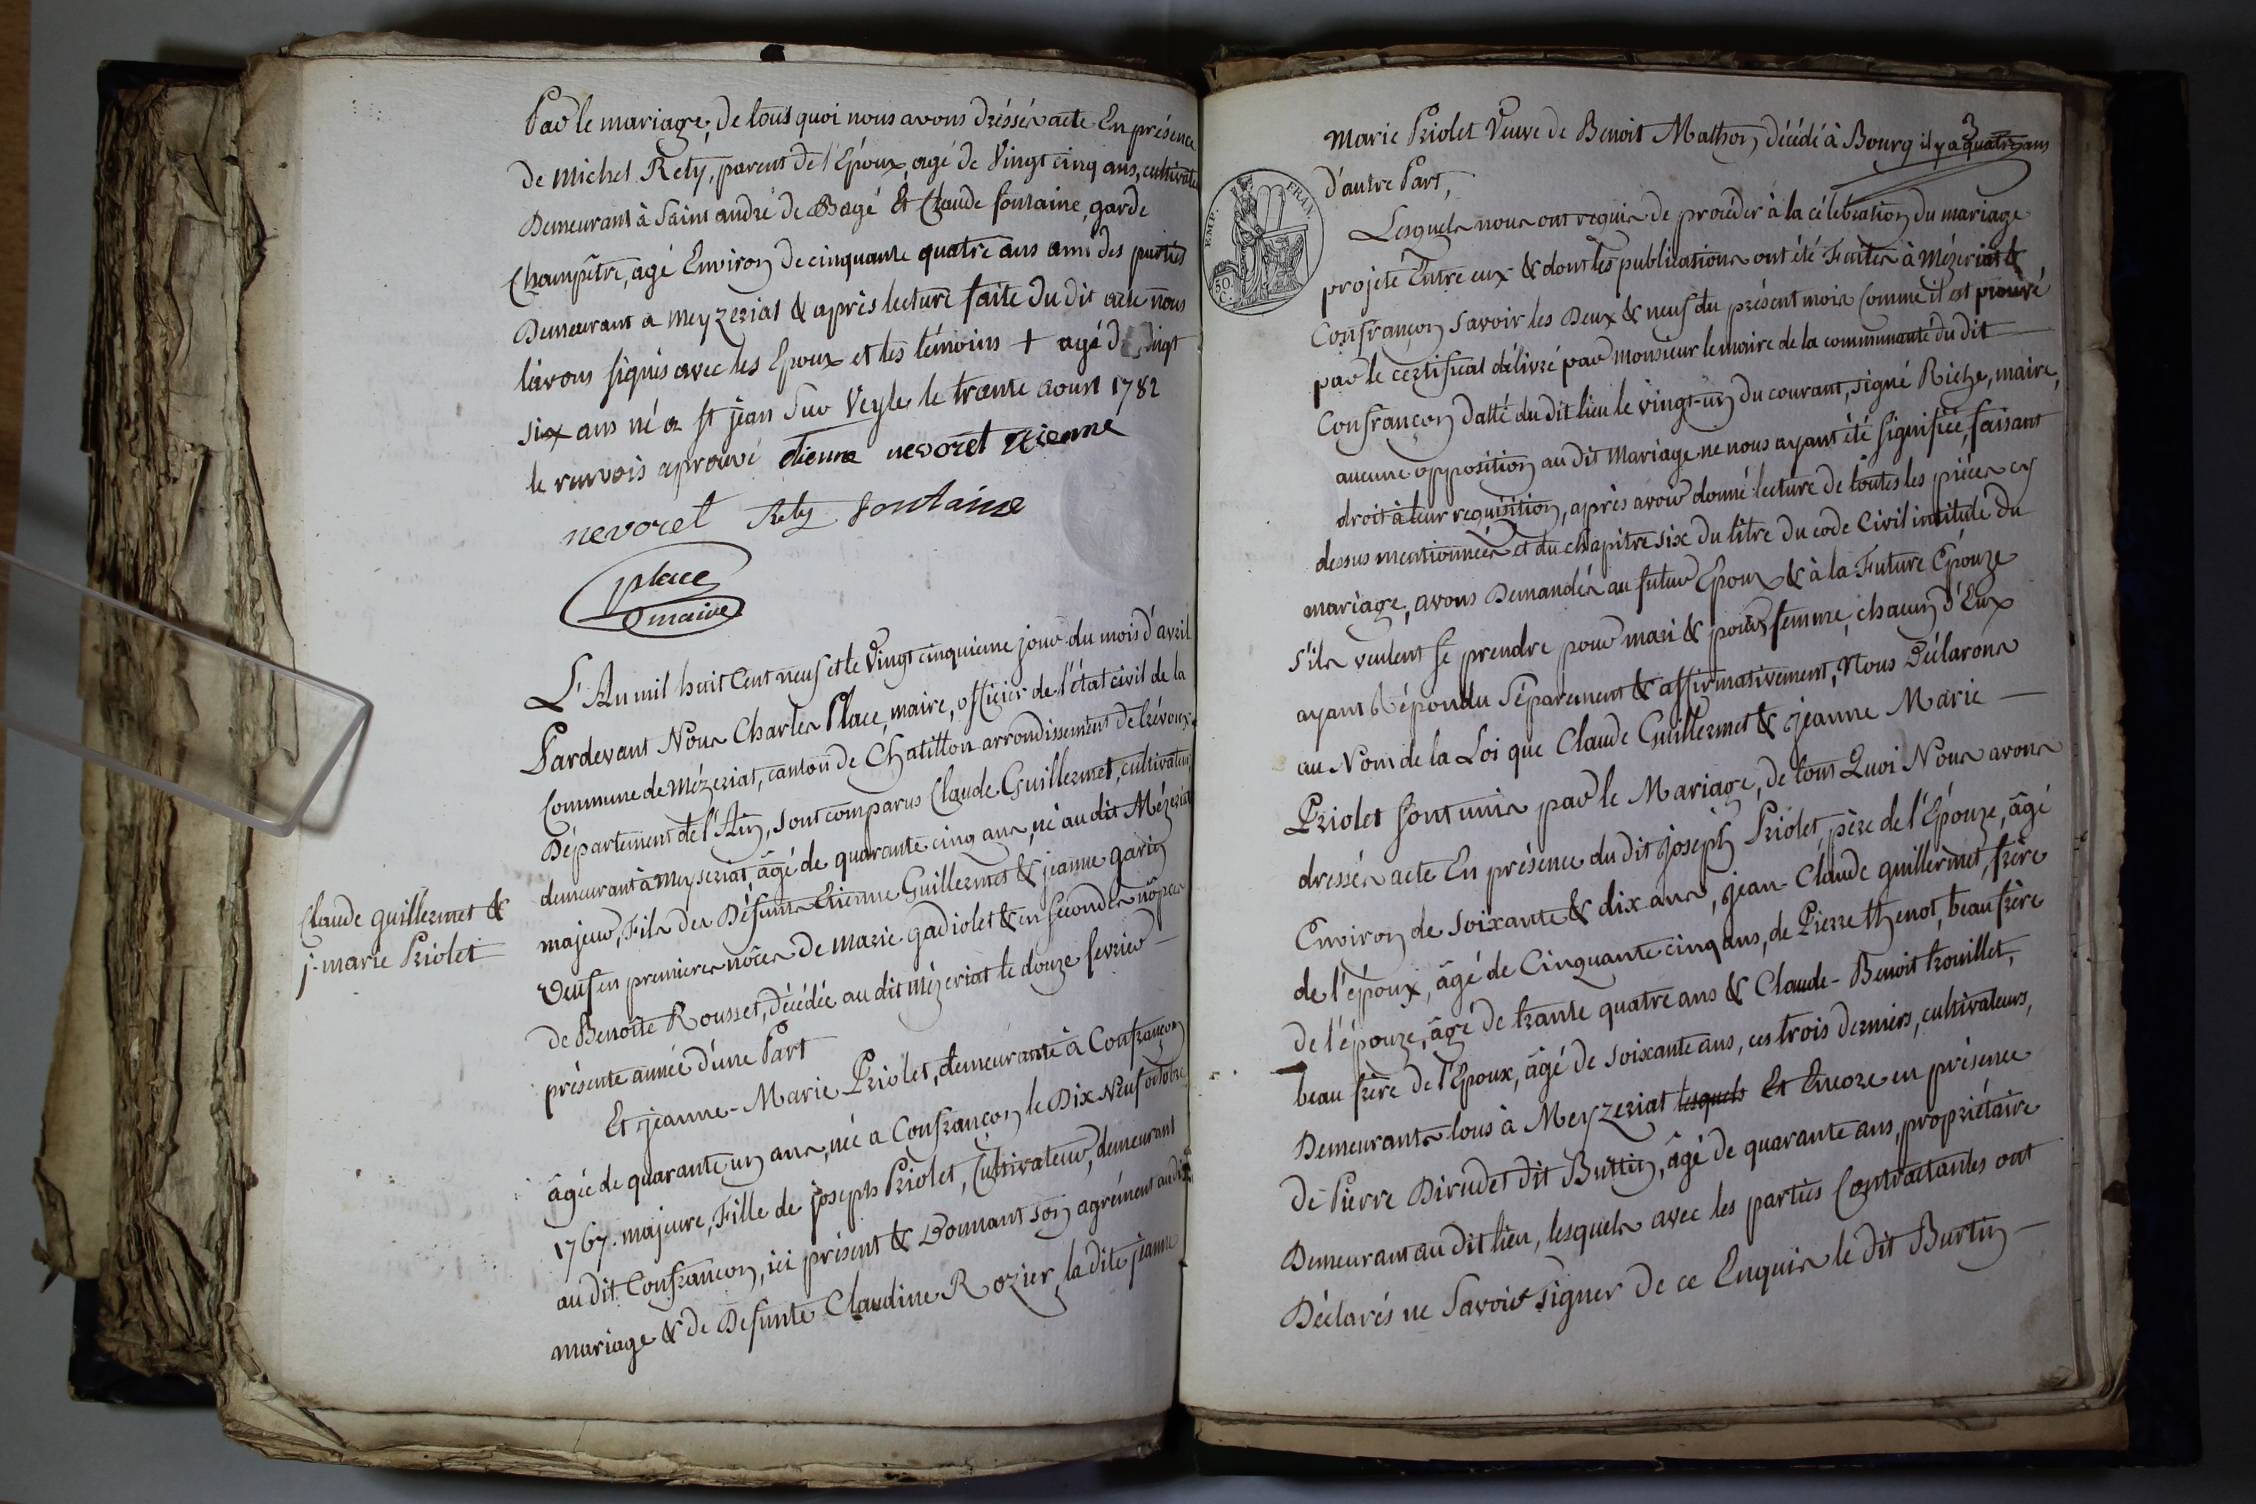 Par le mariage, de tout quoi nous avons dréssés acte En présence
de Michel Rety, parent de l'Epoux, agé de Vingt cinq ans, cultivate
Demeurant à Saint andré de Bagé Et Claude fontaine, garde
Champêtre, agé Environ de cinquante quatre ans ami des parties
Demeurant a meyzeriat & après lecture faite du dit acte nous
l'avons signés avec les Epoux et les témoins + agé de Vingt
six ans né a St jean Sur Veyle le trante aoust 1782
le renvois aprouvé etienne nevoret
nevoret Rety fontaine
place
maire
L'An mil huit Cent neuf et le Vingt cinquieme jour du mois d'avril
Pardevant Nous Charles Place, maire, officier de l'état civil de la
Commune de Mézeriat, canton de Chatillon arrondissement de Trévoux
Département de l'Ain, sont comparus Claude Guillermet, cultivateur
demeurant à Meyseriat, âgé de quarante cinq ans, né au dit Mézeriat
Claude guillermet &
j. marie Priolet
majeur, Fils des Défunts Etienne Guillermet & jeanne garin
Veuf en premieres nôces de marie gadiolet & en secondes nôpces
de Benoîte Rousset, décédée au dit mézeriat le douze fevrier
présente année d'une Part
Et jeanne-Marie Priolet, demeurante à Confrançon
âgée de quarante un ans, née a Confrançon le Dix Neuf octobre
1767. majeure, Fille de joseph Priolet, Cultivateur, demeurant
au dit Confrançon, ici présent & Donnant son agrément au dit
mariage & de Defunte Claudine Rozier, la dite jeanne
EMP. FRAN.
50.
C.
Marie Priolet Veuve de Benoit Mathon, décédé à Bourg il y a 3 quatre ans
d'autre Part,
Lesquels nous ont requis de procéder à la célebration du mariage
projeté Entre eux & dont les publications ont été Faites à Mézeriat &
Confrançon savoir les Deux & neuf du présent mois Comme il est prouvé
par le certificat délivré par monsieur le maire de la communauté du dit
Confrançon datté du dit lieu le vingt-un du courant, signé Riche, maire,
aucune opposition au dit Mariage ne nous ayant été signifiée, faisant
droit à leur requisition, après avoir donné lecture de toutes les pièces cy
dessus mentionnées et du chapitre six du titre du code Civil intitulé du
mariage, avons Demandés au futur Epoux & à la Future Epouze
s'ils veulent se prendre pour mari & pour femme, chacun d'Eux
ayant Répondu séparement & affirmativement, Nous Déclarons
au Nom de la Loi que Claude Guillermet & jeanne Marie
Priolet sont unis par le Mariage, de tout Quoi Nous avons
dressés acte En présence du dit joseph Priolet, père de l'Epouze, âgé
Environ de soixante & dix ans, jean-Claude guillermet, frère
de l'époux, âgé de Cinquante cinq ans, de Pierre thenot, beau frère
de l'épouze, âgé de trante quatre ans & Claude-Benoit trouillet,
beau frère de l'Epoux, âgé de soixante ans, ces trois derniers, cultivateurs,
Demeurants tous à Meyzeriat lesquels Et Encore en présence
de Pierre Dirudet dit Buttin, âgé de quarante ans, propriétaire
Demeurant au dit lieu, lesquels avec les parties Contractantes ont
Déclarés ne Savoir signer De ce Enquis le dit Burtin